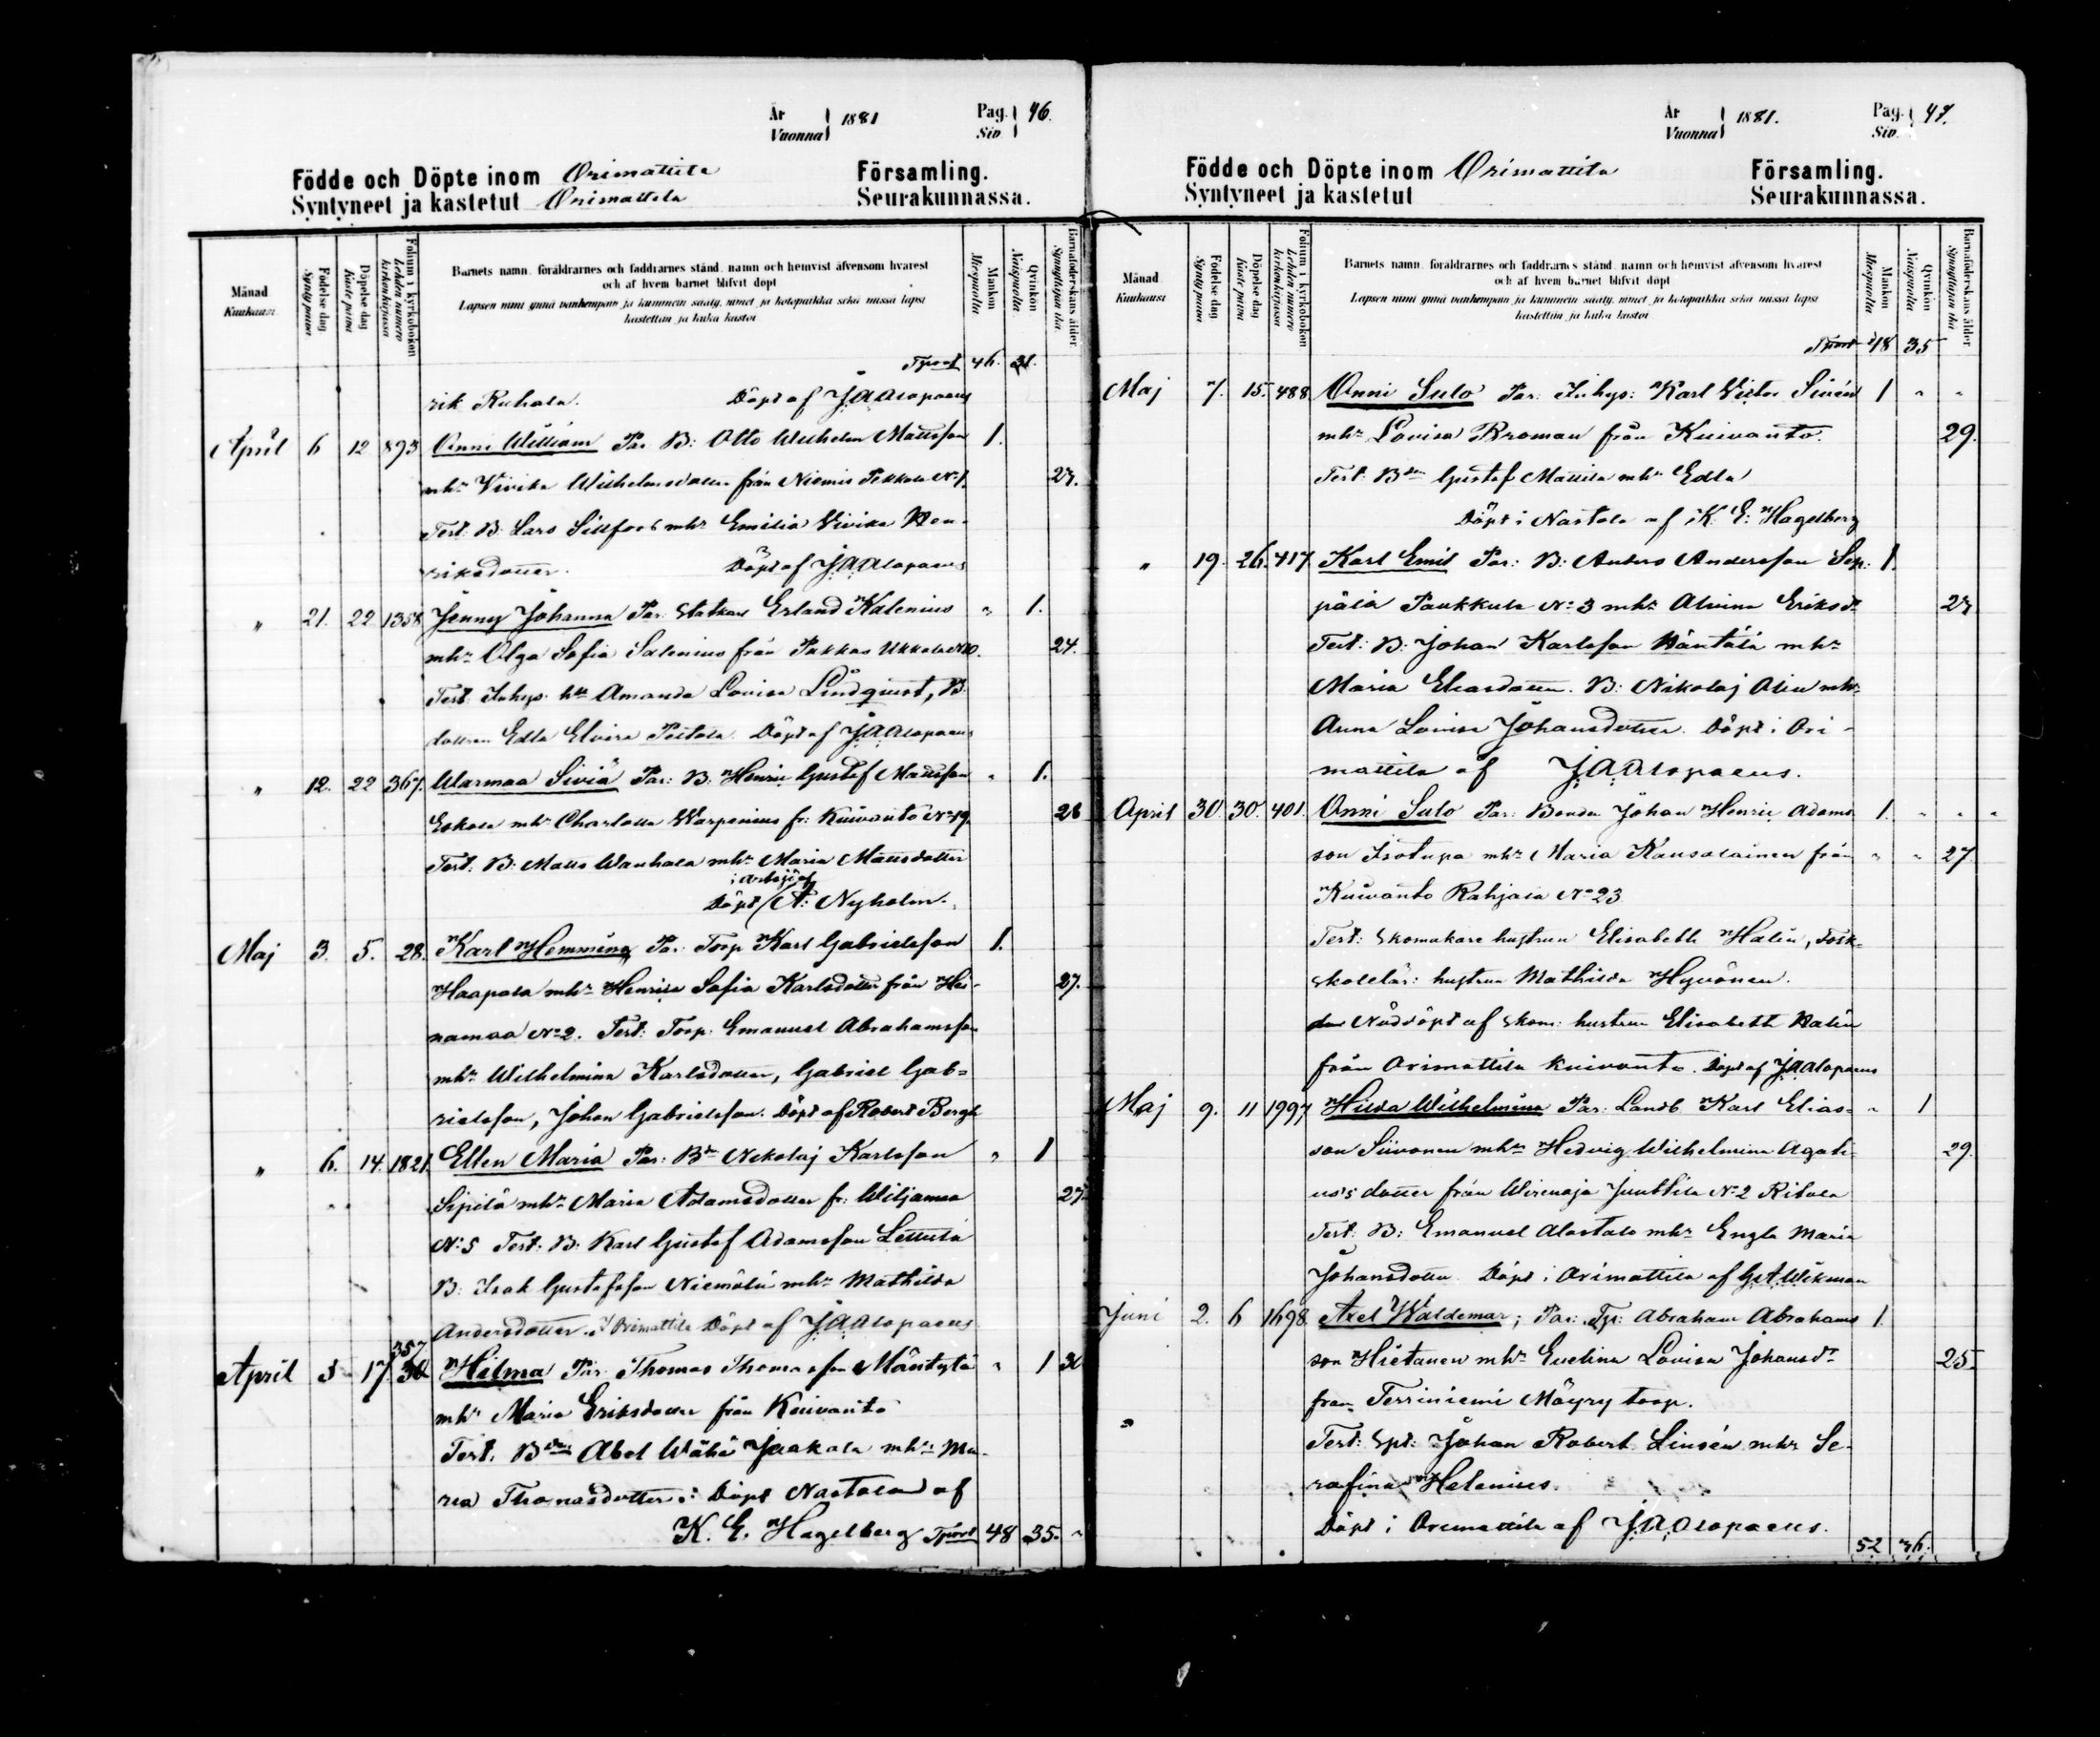 År 1881 Pag. 46.
Vuonna Siv.
Födde och Döpte inom Orimattila Församling.
Syntyneet ja kastetut Orimattila Seurakunnassa.
Månad Kuukausi
Födelse dag Synty päivä
Döpelse dag Kaste päivä
Folium i kyrkoboken Lehden numero kirkonkirjassa
Barnets namn, föräldrarnes och faddrarnes stånd, namn och hemvist äfvensom hvarest
och af hvem barnet blifvit döpt
Lapsen nimi ynnä vanhempain ja kummein sääty, nimet ja kotopaikka sekä missä lapsi
kastettiin ja kuka kastoi
Mankön Miespuolia
Qvinkön Naispuolia
Barnaföderskans ålder Synnyttäjän ikä
Tport 46. 31.
rik Ruhala. Döpt af J A Alopaeus
April 6 12 893 Onni William Par. B: Otto Wilhelm Mattsson 1.
mhr Vivika Wilhelmsdotter från Niemis Pekkala No 1. 27.
Test. B. Lars Sillfors mhr Emilia Vivika Hen-
riksdotter. Döpt af J A Alopaeus
" 21. 22 1358 Jenny Johanna Par. Statkarl Erland Kalenius " 1.
mhr Olga Sofia Salenius från Pakkas Ukkola No 10. 24.
Test. Inhys. h:tr Amanda Lovisa Lindqvist, B.
dottren Edla Elvira Peltola. Döpt af J A Alopaeus
" 12. 22 367. Warmaa Siviä Par: B: Henric Gustaf Mattsson " 1.
Eskola mhr Charlotta Warpenius fr: Kuivanto No 19. 26
Test. B: Matts Wanhala mhr Maria Mattsdotter
i Artsjö af
Döpt A: Nyholm.
Maj 3. 5. 28. Karl Hemming Par. Torp Karl Gabrielsson 1.
Haapala mhr Henrika Sofia Karlsdotter från Hei- 27.
namaa No 2. Test: Torp: Emanuel Abrahamsson
mhr Wilhelmina Karlsdotter, Gabriel Gab-
rielsson, Johan Gabrielsson. Döpt af Robert Bergh
" 6. 14. 1821. Ellen Maria Par: Bdn Nikolaj Karlsson " 1
Sipilä mhr Maria Adamsdotter fr: Wiljamaa 27
No 5 Test. B: Karl Gustaf Adamsson Lettula
B: Isak Gustafsson Niemölä mhr Mathilda
Andersdotter. I Orimattila Döpt af J A Alopaeus
357
April 3 17 30 Hilma Par. Thomas Thomasson Mäntylä " 1 30
mhr Maria Eriksdotter från Kuivanto
Test. Bdn Abel Wähä Jaakala mhr: Ma-
ria Thomasdotter: Döpt Nastola af
K. E. Hagelberg Tport 48 35. "
År 1881. Pag. 47.
Vuonna Siv.
Födde och Döpte inom Orimattila Församling.
Syntyneet ja kastetut Seurakunnassa.
Månad Kuukausi
Födelse dag Synty päivä
Döpelse dag Kaste päivä
Folium i kyrkoboken Lehden numero kirkonkirjassa
Barnets namn, föräldrarnes och faddrarnes stånd, namn och hemvist äfvensom hvarest
och af hvem barnet blifvit döpt
Lapsen nimi ynnä vanhempain ja kummein sääty, nimet ja kotopaikka sekä missä lapsi
kastettiin ja kuka kastoi
Mankön Miespuolia
Qvinkön Naispuolia
Barnaföderskans ålder Synnyttäjän ikä
Tport 48 35
Maj 7. 15. 488 Onni Sulo Par: Inhys: Karl Victor Sivén 1 " "
mhr Lovisa Broman från Kuivanto. 29.
Test: Bdn Gustaf Mattila mhr Edla
Döpt i Nastola af K: E: Hagelberg
" 19. 26. 417 Karl Emil Par: B: Anders Andersson Sep- 1.
pälä Paukkula No 3 mhr Alvina Eriksdr 27
Test: B: Johan Karlsson Wäntälä mhr
Maria Eliasdotter. B: Nikolaj Alin mhr
Anna Lovisa Johansdotter. Döpt i Ori-
mattila af J A Alopaeus.
April 30. 30. 401. Onni Sulo Par: Bonden Johan Henric Adams 1. " " "
son Isotupa mhr Maria Kansalainen från " " 27
Kuivanto Rahjala No 23
Test: Skomakare hustrun Elisabeth Halin, Folk-
skolelär: hustrun Mathilda Hyvönen.
Nöddöpt af Skom: hustrun Elisabeth Halin
från Orimattila Kuivanto. Döpt af J A Alopaeus
Maj 9. 11 1997 Hilda Wilhelmina Par: Landb. Karl Elias- " 1
son Siivonen mhr Hedvig Wilhelmina Agati- 29.
us's dotter från Wirenoja Junttila No 2 Ritala
Test: B: Emanuel Alastalo mhr Engla Maria
Johansdotter. Döpt i Orimattila af G A Wikman
Juni 2. 6 1698 Axel Waldemar; Par: Tp: Abraham Abrahams 1.
son Hietanen mhr Evelina Lovisa Johansdr 25.
från Terriniemi Mäyry torp.
" Test: Spt: Johan Robert Linsén mhr Se-
rafina Helenius.
Döpt i Orimattila af J A Alopaeus.
52 36.